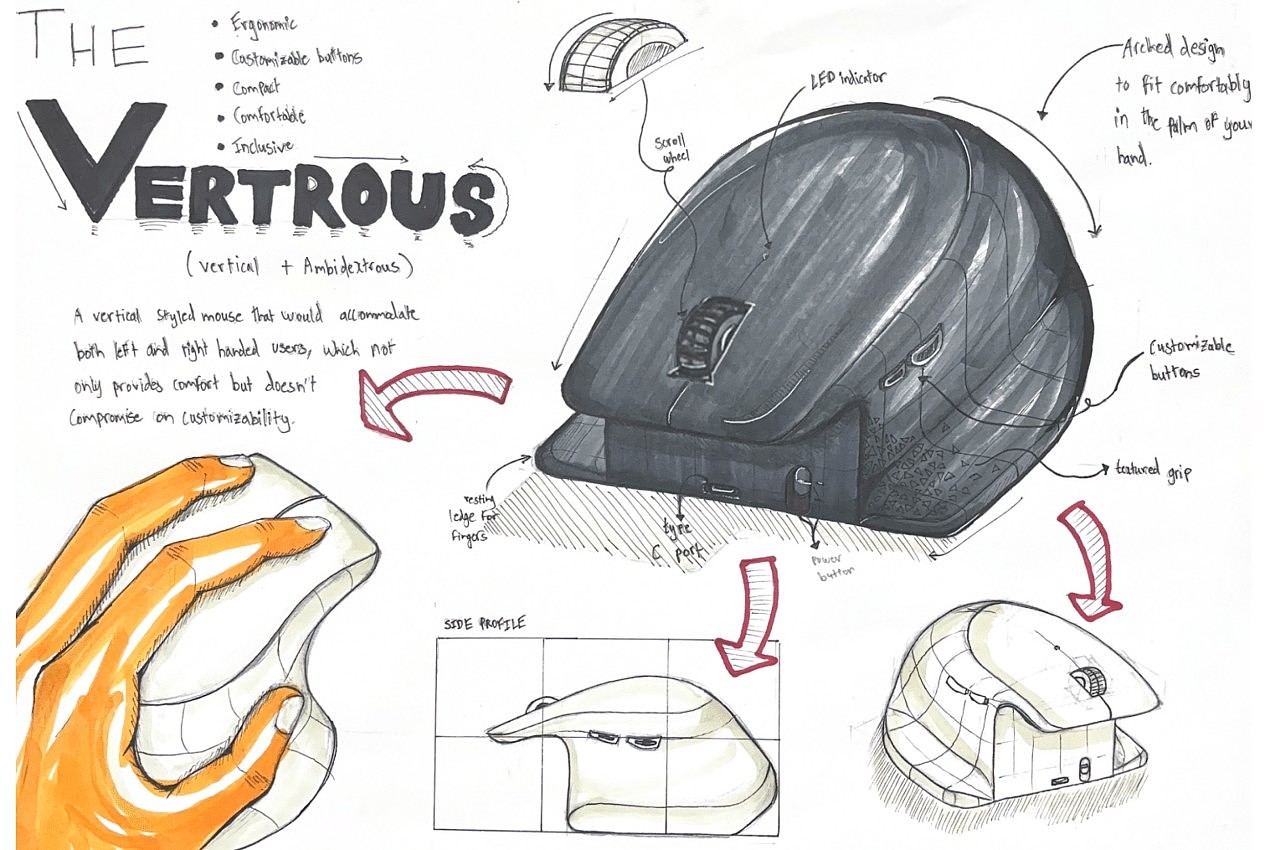 THE
VERTROUS
(vertical + Ambidextrous)
• Ergonomic
• Customizable buttons
• Compact
• Comfortable
• Inclusive
A vertical styled mouse that would accommodate
both left and right handed users, which not
only provides comfort but doesn't
compromise on customizability.
Scroll
wheel
LED indicator
Arched design
to fit comfortably
in the palm of your
hand.
Customizable
buttons
textured grip
resting
ledge for
fingers
type
C port
power
button
SIDE PROFILE